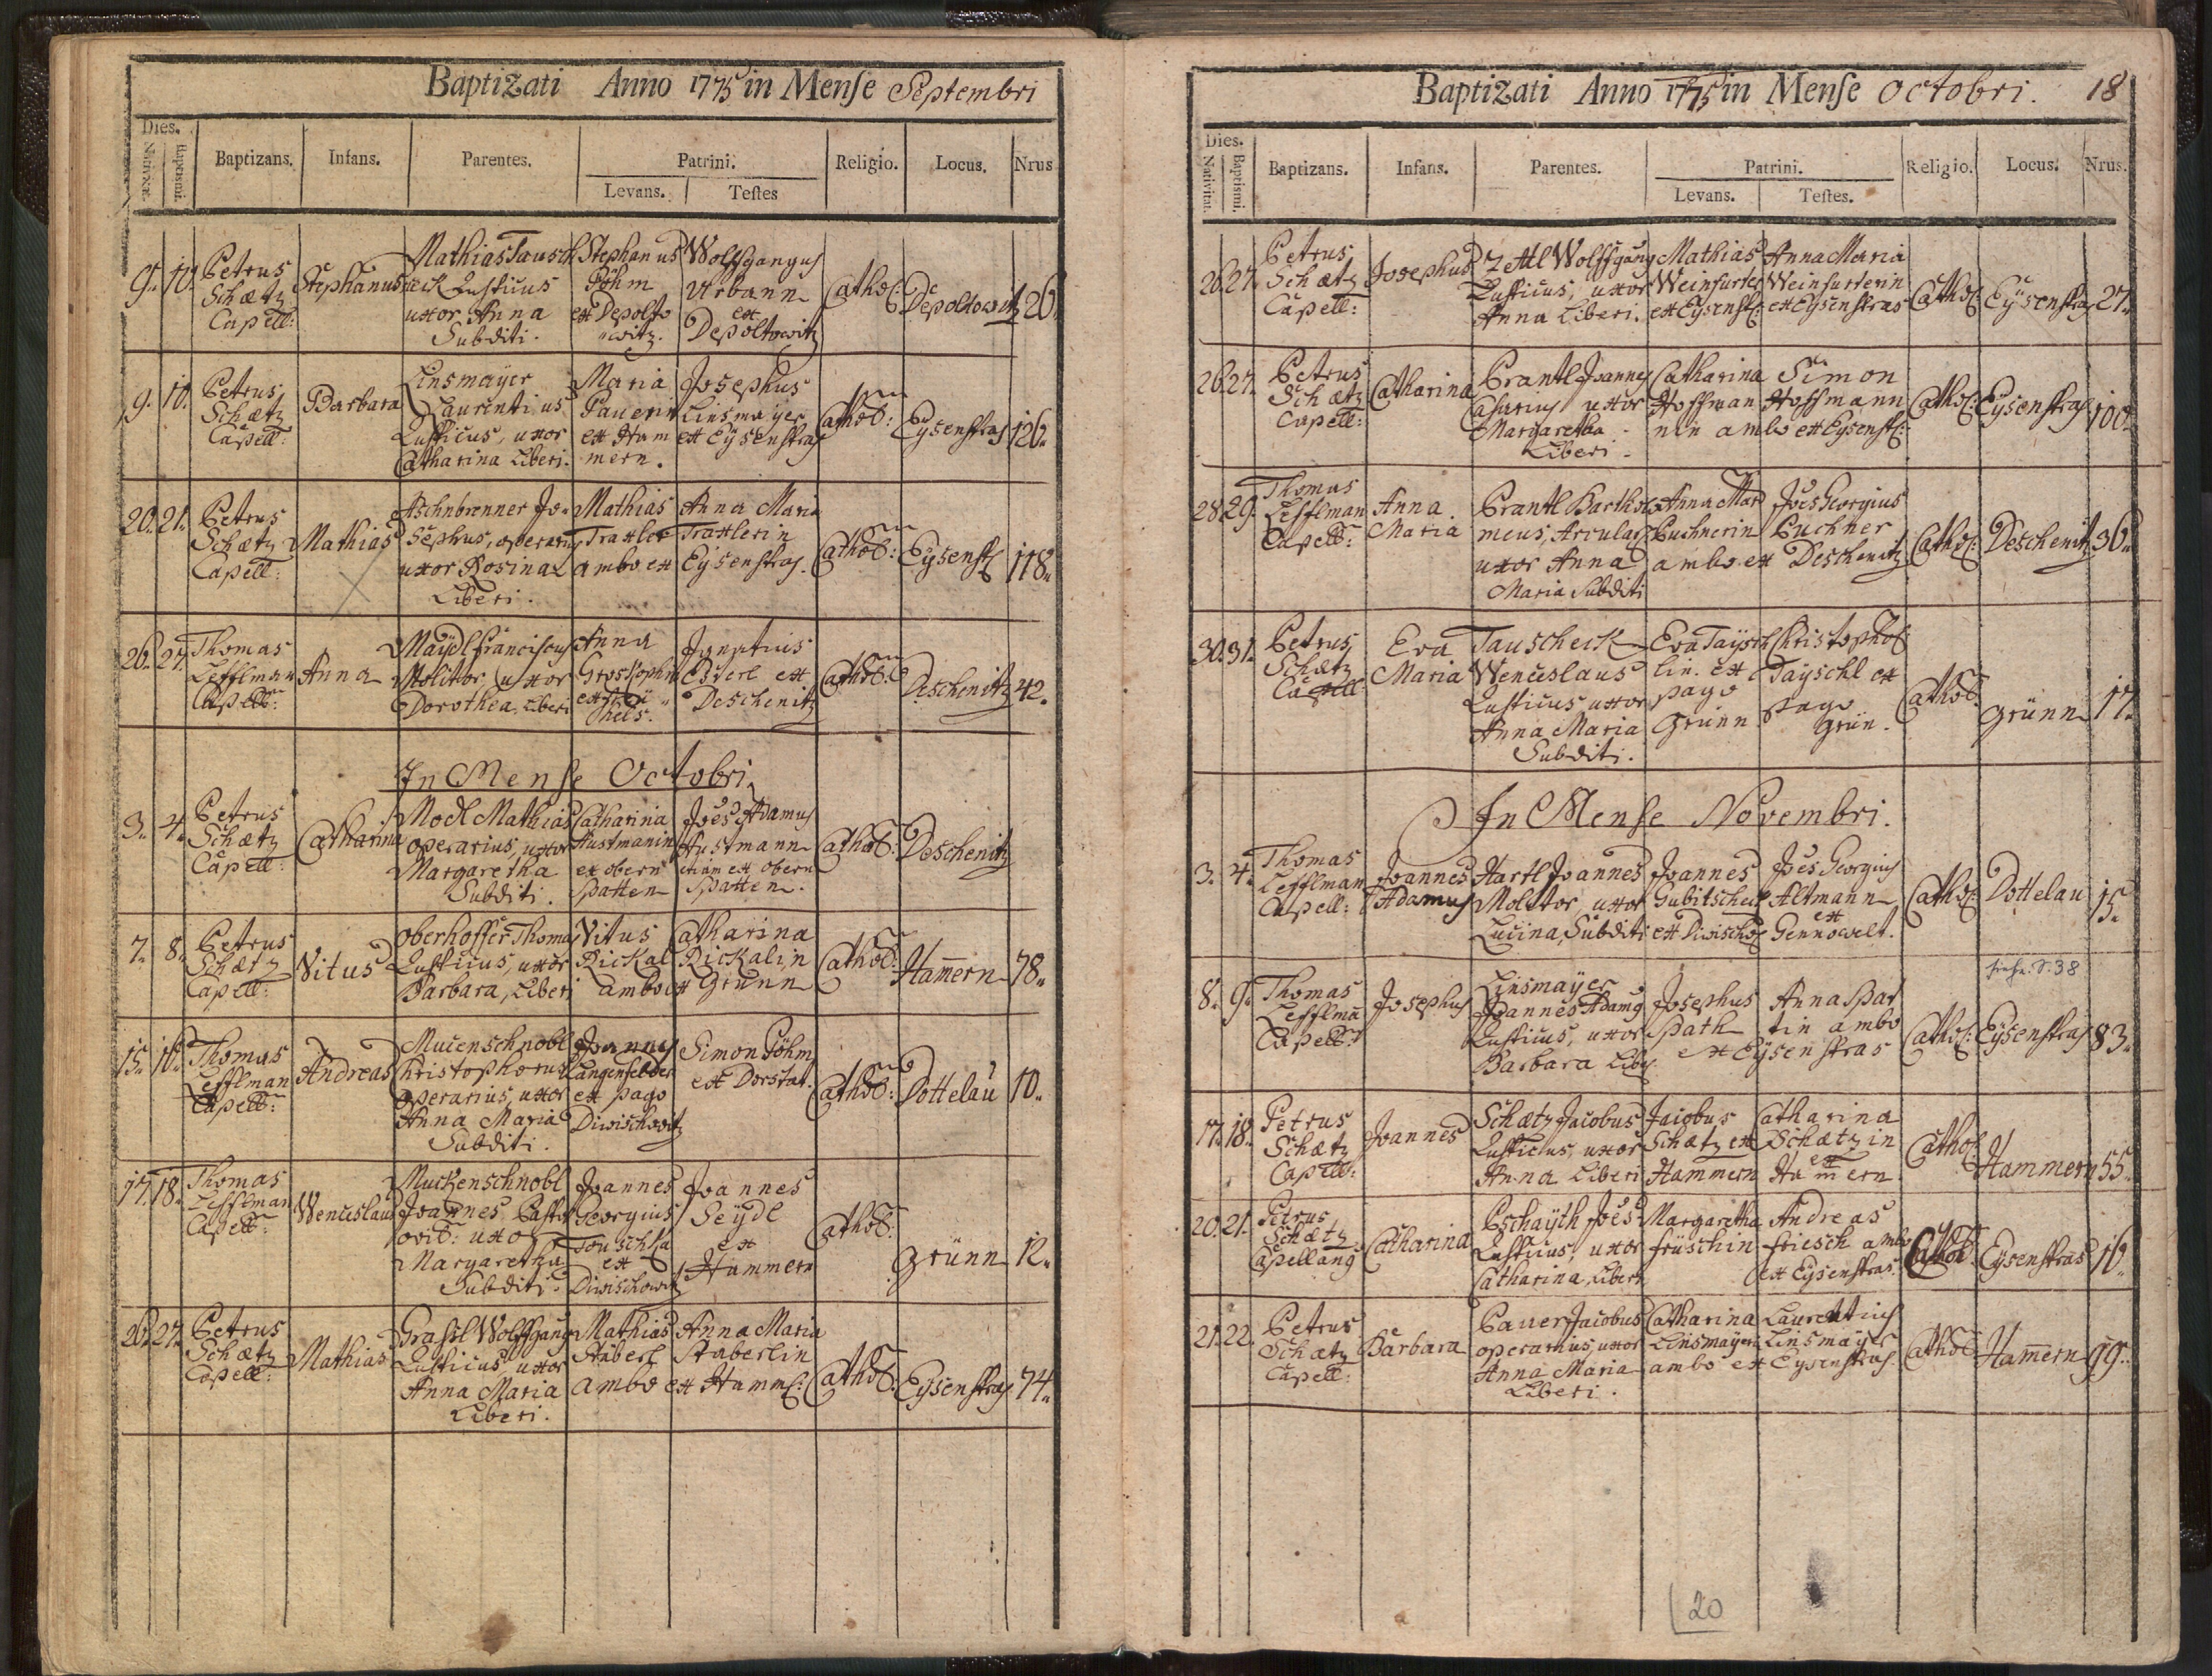 Baptizati Anno 1775 in Mense Septembri
Dies.
Nativitat.
Baptismi.
Baptizans.
Infans.
Parentes.
Patrini.
Levans.
Testes
Religio.
Locus.
Nrus
9. 10. Petrus Schætz Capell: Stephanus
Mathias Tausch
eck Rusticus
uxor Anna
Subditi.
Stephanus
Böhm
ex Depolto
witz.
Wolffgangus
Urbann
ex
Depoltowitz
Cathol: Depoltowitz 26.
9. 10. Petrus Schætz Capell: Barbara
Linsmayer
Laurentius
Rusticus, uxor
Catharina Liberi.
Maria
Pauerin
ex Ham
mern.
Josephus
Linsmayer
ex Eysenstras
Cathol: Eysenstras 126.
20. 21. Petrus Schætz Capell: Mathias
Aschnbrenner Jo-
sephus, operarius
uxor Rosina
Liberi.
Mathias
Traxler
ambo ex
Anna Maria
Traxlerin
Eysenstras.
Cathol: Eysenst: 118.
26. 27. Thomas Lefflman Capell: Anna
Maydl Franciscus
Molitor, uxor
Dorothea, Liberi
Anna
Ignatius
Ederl ex
Deschenitz
Cathol: Deschenitz 42.
In Mense Octobri
3. 4. Petrus Schætz Capell: Catharina
Modl Mathias
operarius, uxor
Margaretha
Subditi.
Catharina
Austmanin
ex obern
Spatten
Joes Adamus
Austmann
etiam ex obern
Spatten.
Cathol: Deschenitz
7. 8. Petrus Schætz Capell: Vitus
Oberhoffer Thomas
Rusticus, uxor
Barbara, Liberi
Vitus
Rickal
ambo ex
Catharina
Rickalin
Grünn
Cathol: Ham̄ern 78.
15. 16. Thomas Lefflman Capell: Andreas
Mucenschnobl
Christophorus
operarius, uxor
Anna Maria
Subditi.
Joannes
Langenfelder
ex pago
Diwischowitz
Simon Böhm
ex Dorstat.
Cathol: Dottelau 10.
17. 18. Thomas Lefflman Capell: Wenceslaus
Muckenschnobl
Joannes, Pastor
ovil: uxor
Margaretha
Subditi.
Joannes
Georgius
Touschka
ex
Diwischowitz
Joannes
Seydl
ex
Hammern
Cathol: Grünn 12.
26. 27. Petrus Schætz Capell: Mathias
Grassl Wolffgang
Rusticus uxor
Anna Maria
Liberi.
Mathias
Staberl
ambo
Anna Maria
Staberlin
ex Hamm:
Cathol: Eysenstras 74.
Baptizati Anno 1775 in Mense Octobri. 18
Dies.
Nativitat.
Baptismi.
Baptizans.
Infans.
Parentes.
Patrini.
Levans.
Testes.
Religio.
Locus.
Nrus.
26. 27. Petrus Schætz Capell: Josephus
Zettl Wolffgang
Rusticus, uxor
Anna Liberi.
Mathias
Weinfurter
ex Eysenst:
Anna Maria
Weinfurterin
ex Eysenstras
Cathol: Eysenstras 27.
26. 27. Petrus Schætz Capell: Catharina
Prantl Joannes
Casarius uxor
Margaretha
Liberi.
Catharina
Hoffman
nin ambo
Simon
Hoffmann
ex Eysenst:
Cathol: Eysenstras 100.
28. 29. Thomas Lefflman Capell: Anna Maria
Prantl Bartholo
meus, Arcular:
uxor Anna
Maria Subditi
Anna Mar
Puchnerin
ambo ex
Joes Georgius
Puchner
Deschenitz
Cathol: Deschenitz 36.
30. 31. Petrus Schætz Capell: Eva Maria
Tauscheck
Wenceslaus
Rusticus uxor
Anna Maria
Subditi.
Eva Taysch
lin. ex
pago
Grünn
Christophor
Tayschl ex
pago
Grün.
Cathol: Grünn 17.
In Mense Novembri.
3. 4. Thomas Lefflman Capell: Joannes Adamus
Hartl Joannes
Molitor uxor
Lucina, Subditi
Joannes
Gubitscheck
ex Diwischo:
Joes Georgius
Altmann
ex
Gennowelt.
Cathol: Dottelau 15.
8. 9. Thomas Lefflma Capell: Josephus
Linsmayer
Joannes Adamg
Rusticus, uxor
Barbara Liberi
Josephus
Spath
ex
Anna Spat
tin ambo
Eysenstras
Cathol: Eysenstras 83.
17. 18. Petrus Schætz Capell: Joannes
Schætz Jacobus
Rusticus, uxor
Anna Liberi
Jacobus
Schætz ex
Hammern
Catharina
Schætzin
ex
Ham̄ern
Cathol: Hammern 55.
20. 21. Petrus Schætz Capellang Catharina
Pschayth Joes
Rusticus, uxor
Catharina Liberi
Margaretha
früschin
Andreas
friesch ambo
ex Eysenstras.
Cathol: Eysenstras 16.
21. 22. Petrus Schætz Capell: Barbara
Pauer Jacobus
operarius, uxor
Anna Maria
Liberi.
Catharina
Linsmayerin
ambo ex
Laurentius
Linsmayer
Eysenstras
Cathol: Ham̄ern 99.
20